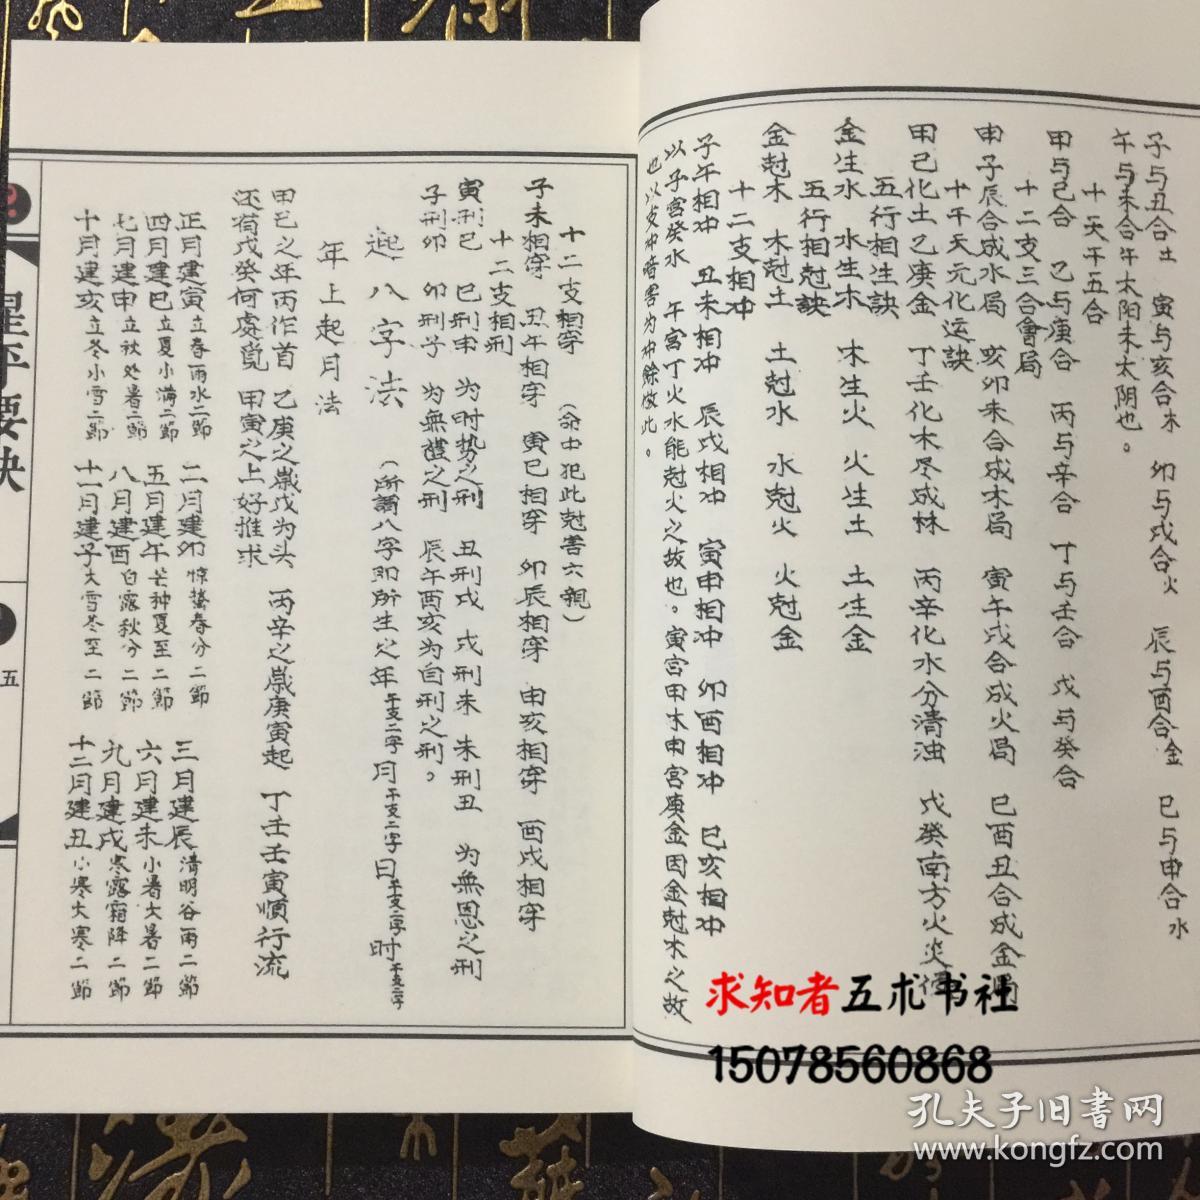 子与丑合土　寅与亥合木　卯与戌合火　辰与酉合金　巳与申合水
午与未合午太阳未太阴也。
十天干五合
甲与己合　乙与庚合　丙与辛合　丁与壬合　戊与癸合
十二支三合會局
申子辰合成水局　亥卯未合成木局　寅午戌合成火局　巳酉丑合成金局
十干天元化运訣
甲己化土乙庚金　丁壬化木尽成林　丙辛化水分清浊　戊癸南方火炎
五行相生訣
金生水　水生木　木生火　火生土　土生金
五行相尅訣
金尅木　木尅土　土尅水　水尅火　火尅金
十二支相冲
子午相冲　丑未相冲　辰戌相冲　寅申相冲　卯酉相冲　巳亥相冲
以子宫癸水　午宫丁火水能尅火之故也。寅宫甲木申宫庚金因金尅木之故
也以支冲暗害为冲餘倣此。
十二支相穿　（命中犯此尅害六親）
子未相穿　丑午相穿　寅巳相穿　卯辰相穿　申亥相穿　酉戌相穿
十二支相刑
寅刑巳　巳刑申　为时势之刑　丑刑戌　戌刑未　未刑丑　为無恩之刑
子刑卯　卯刑子　为無禮之刑　辰午酉亥为自刑之刑。
起八字法　（所謂八字即所生之年干支二字月干支二字日干支二字时干支二字
年上起月法
甲己之年丙作首　乙庚之歲戊为头　丙辛之歲庚寅起　丁壬壬寅順行流
还有戊癸何處覓　甲寅之上好推求
正月建寅立春雨水二節　二月建卯惊蟄春分二節　三月建辰清明谷雨二節
四月建巳立夏小满二節　五月建午芒种夏至二節　六月建未小暑大暑二節
七月建申立秋处暑二節　八月建酉白露秋分二節　九月建戌寒露霜降二節
十月建亥立冬小雪二節　十一月建子大雪冬至二節　十二月建丑小寒大寒二節
星平要诀
五
求知者五术书社
15078560868
孔夫子旧书网
www.kongfz.com